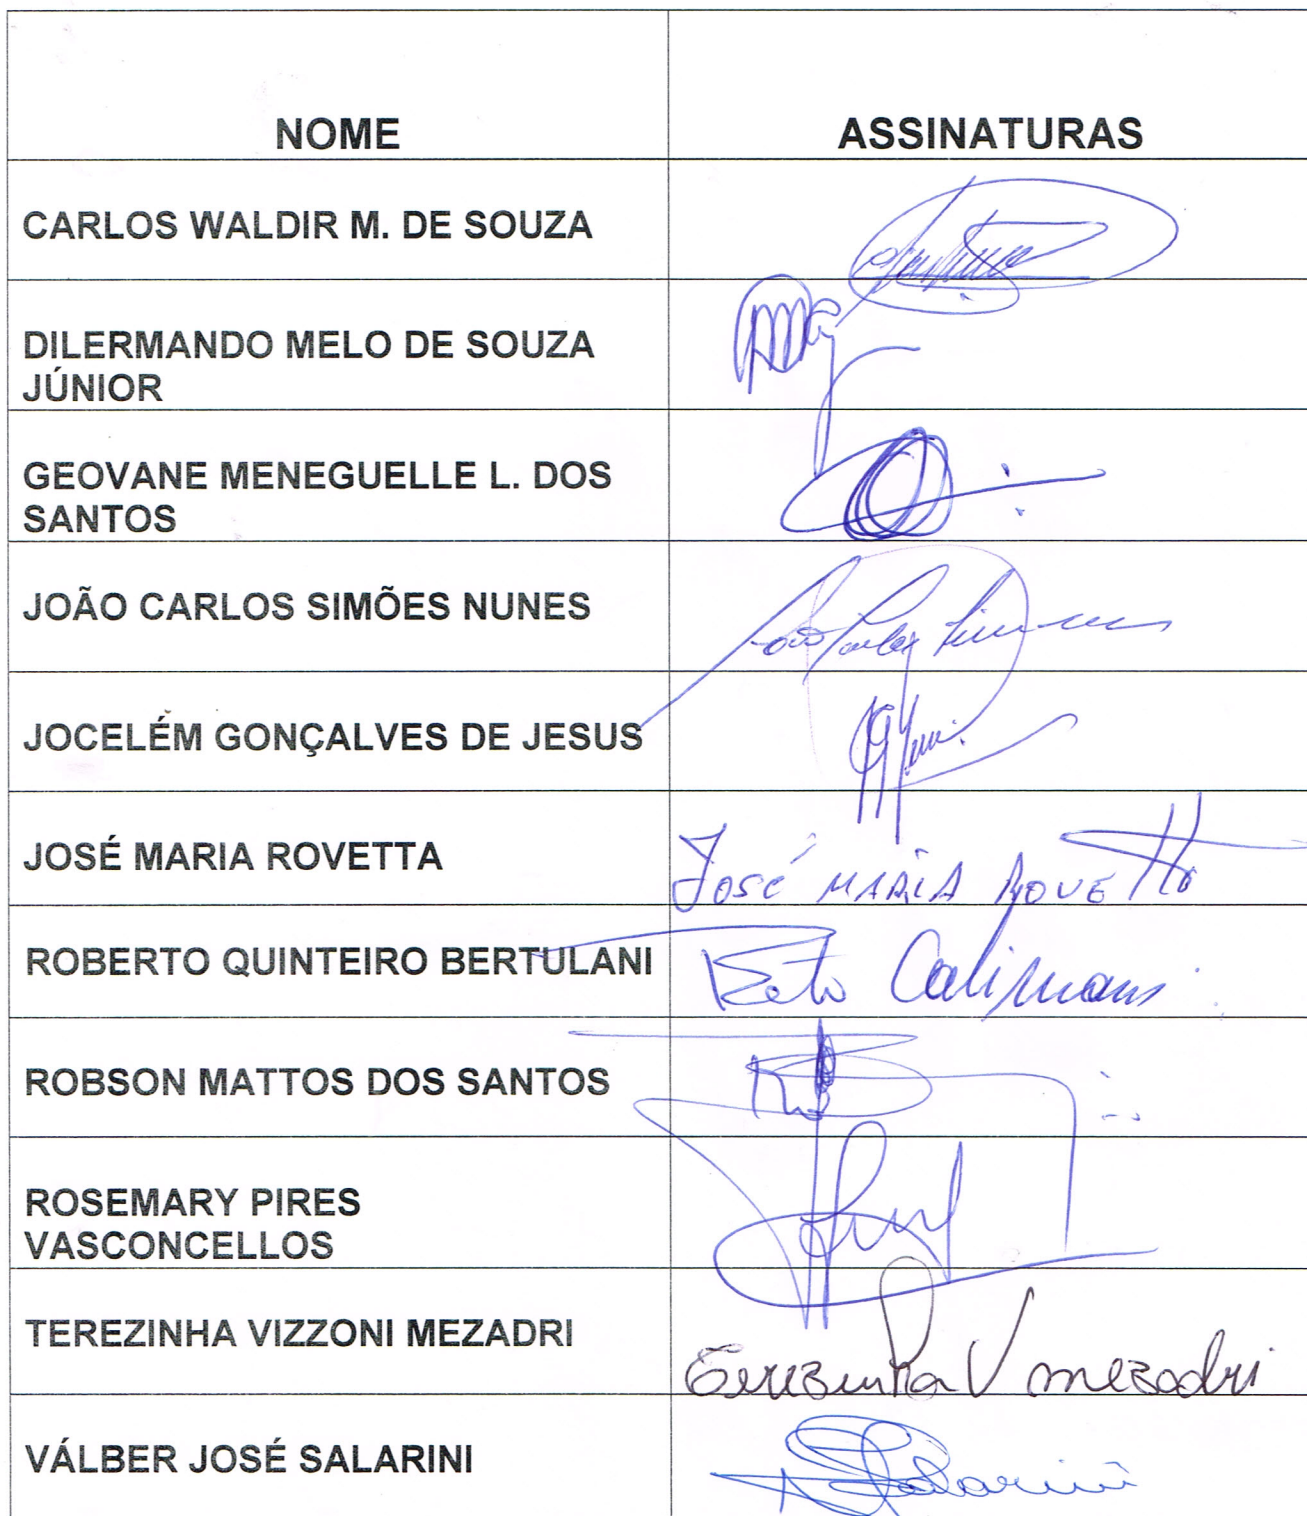 NOME
ASSINATURAS
CARLOS WALDIR M. DE SOUZA
DILERMANDO MELO DE SOUZA
JÚNIOR
GEOVANE MENEGUELLE L. DOS
SANTOS
JOÃO CARLOS SIMÕES NUNES
João Carlos
JOCELÉM GONÇALVES DE JESUS
JOSÉ MARIA ROVETTA
José MARIA ROVETTA
ROBERTO QUINTEIRO BERTULANI
Beto Calimans
ROBSON MATTOS DOS SANTOS
ROSEMARY PIRES
VASCONCELLOS
TEREZINHA VIZZONI MEZADRI
Terezinha V mezadri
VÁLBER JOSÉ SALARINI
Salarini